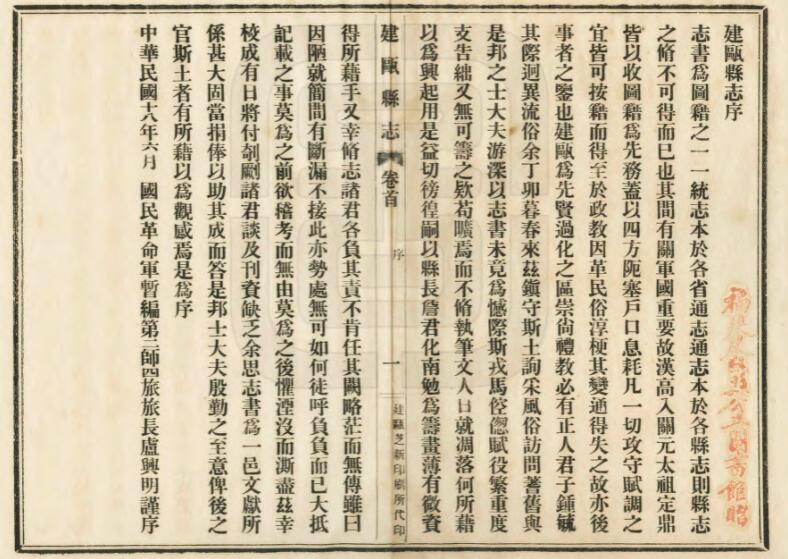 建甌縣志序
志書爲圖籍之一一統志本於各省通志通志本於各縣志則縣志
之脩不可得而已也其間有關軍國重要故漢高入關元太祖定鼎
皆以收圖籍爲先務蓋以四方阨塞戶口息耗凡一切攻守賦調之
宜皆可按籍而得至於政教因革民俗淳梗其變通得失之故亦後
事者之鑒也建甌爲先賢過化之區崇尙禮教必有正人君子鍾毓
其際迥異流俗余丁卯暮春來茲鎭守斯土詢采風俗訪問蓍舊與
是邦之士大夫游深以志書未竟爲憾際斯戎馬倥傯賦役繁重度
支告絀又無可籌之欵苟曠焉而不脩執筆文人日就凋落何所藉
以爲興起用是益切徬徨嗣以縣長詹君化南勉爲籌畫薄有徵資
建甌縣志
卷首
序
一
建甌芝新印刷所代印
得所藉手又幸脩志諸君各負其責不肯任其闕略茫而無傳雖曰
因陋就簡間有斷漏不接此亦勢處無可如何徒呼負負而已大抵
記載之事莫爲之前欲稽考而無由莫爲之後懼湮沒而澌盡茲幸
校成有日將付剞劂諸君談及刊資缺乏余思志書爲一邑文獻所
係甚大固當捐俸以助其成而答是邦士大夫殷勤之至意俾後之
官斯土者有所藉以爲觀感焉是爲序
中華民國十八年六月　國民革命軍暫編第二師四旅旅長盧興明謹序